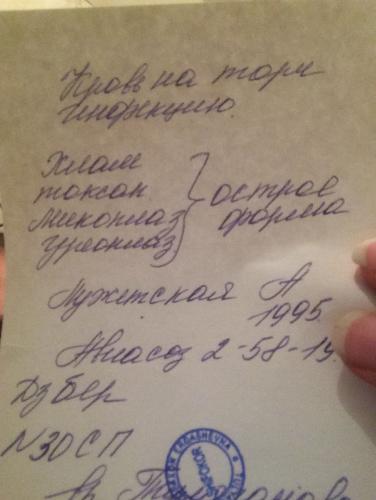 Кровь на торч
инфекцию.
Хлам
токсоп
Микоплаз
уреоплаз
} острое
форма
Мужетская А
1995.
Авиасоз 2-58-19
Dз бер
№30 СП